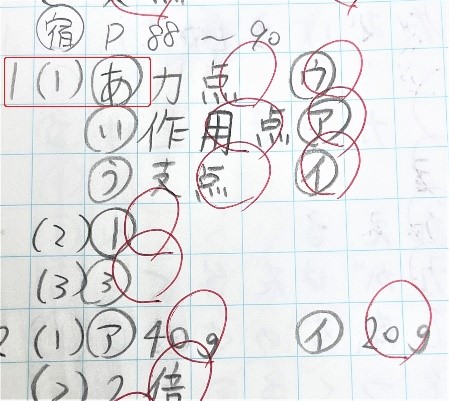 ㊙宿 P 88 ~ 90
1 (1) あ 力点 ウ
い 作用点 ア
う 支点 イ
(2) ①
(3) ③
2 (1) ア 40g イ 20g
(2) 2倍